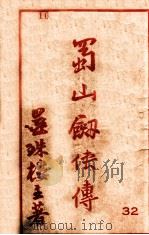 蜀山劍俠傳
還珠樓主著
32